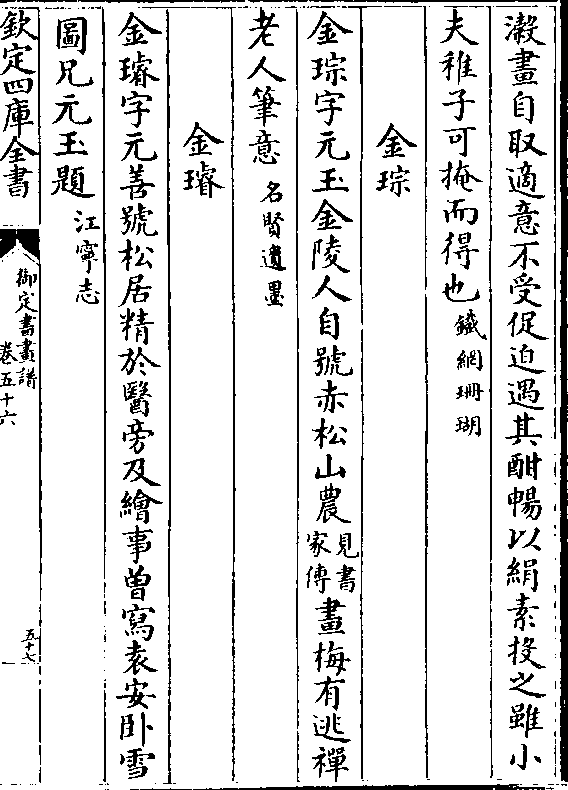 潊畫自取適意不受促迫遇其酣暢以絹素投之雖小
夫稚子可掩而得也鐵網珊瑚
金琮
金琮字元玉金陵人自號赤松山農見書家傳畫梅有逃禪
老人筆意名賢遺墨
金璿
金璿字元善號松居精於醫旁及繪事曽寫袁安卧雪
圖兄元玉題江寧志
欽定四庫全書
御定書畫譜
卷五十六
五十七